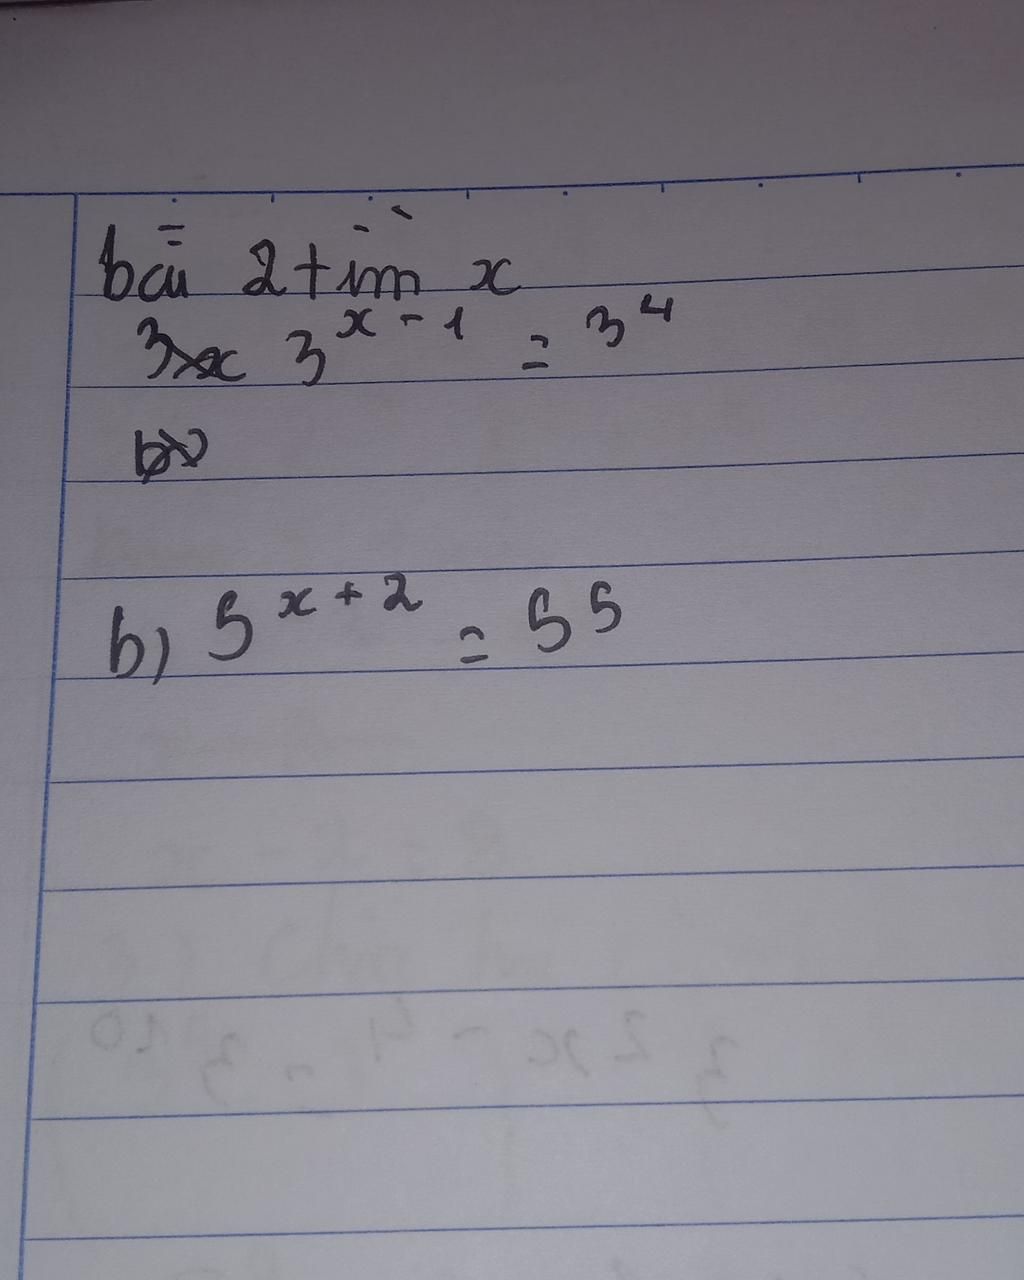 bài 2 tìm x
3^{x-1} = 3^4
b) 5^{x+2} = 5^5